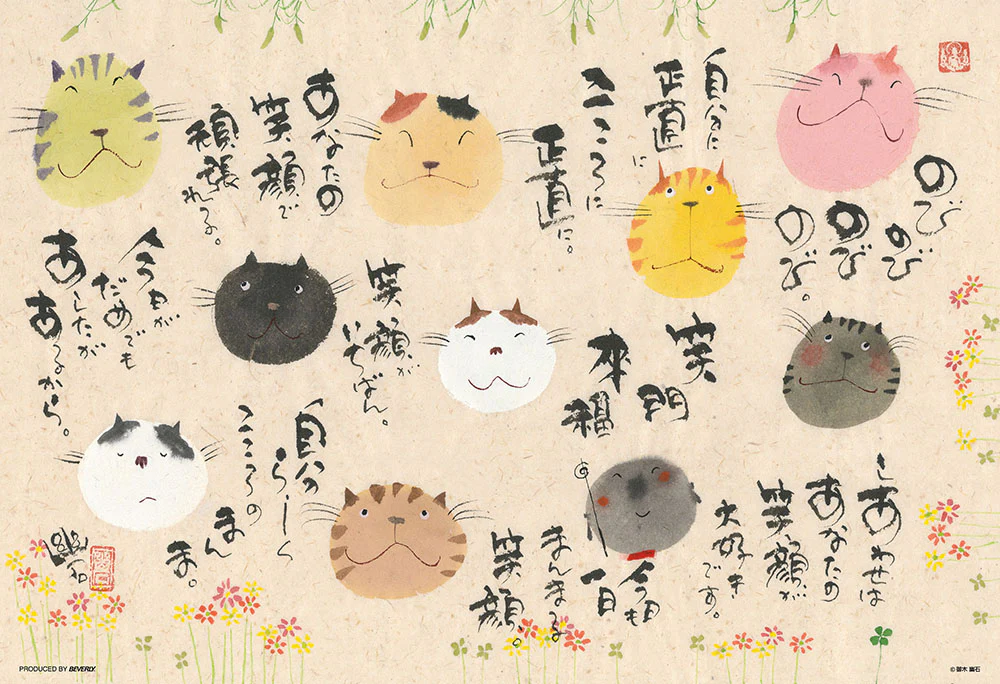 のび
のび
のび
のび。
自分に
正直に
こころに
正直に。
あなたの
笑顔で
頑張れる。
笑
門
来
福
笑顔が
いちばん。
今日が
だめでも
あしたが
あるから。
しあわせは
あなたの
笑顔が
大好き
です。
今日も
一日
まんまる
笑顔。
自分
らしく
こころの
まん
ま。
PRODUCED BY BEVERLY.
© 御木 幽石